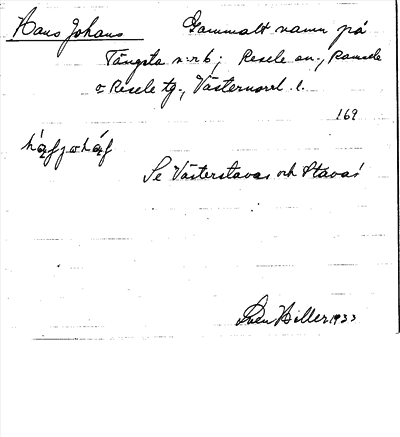 Hans Johans Gammalt namn på
Tängsta n:r 6; Resele sn., Ramsele
o Resele tg., Västernorrl. l.
169
Se Västerstavas och Stavas
Sven Hiller 1933